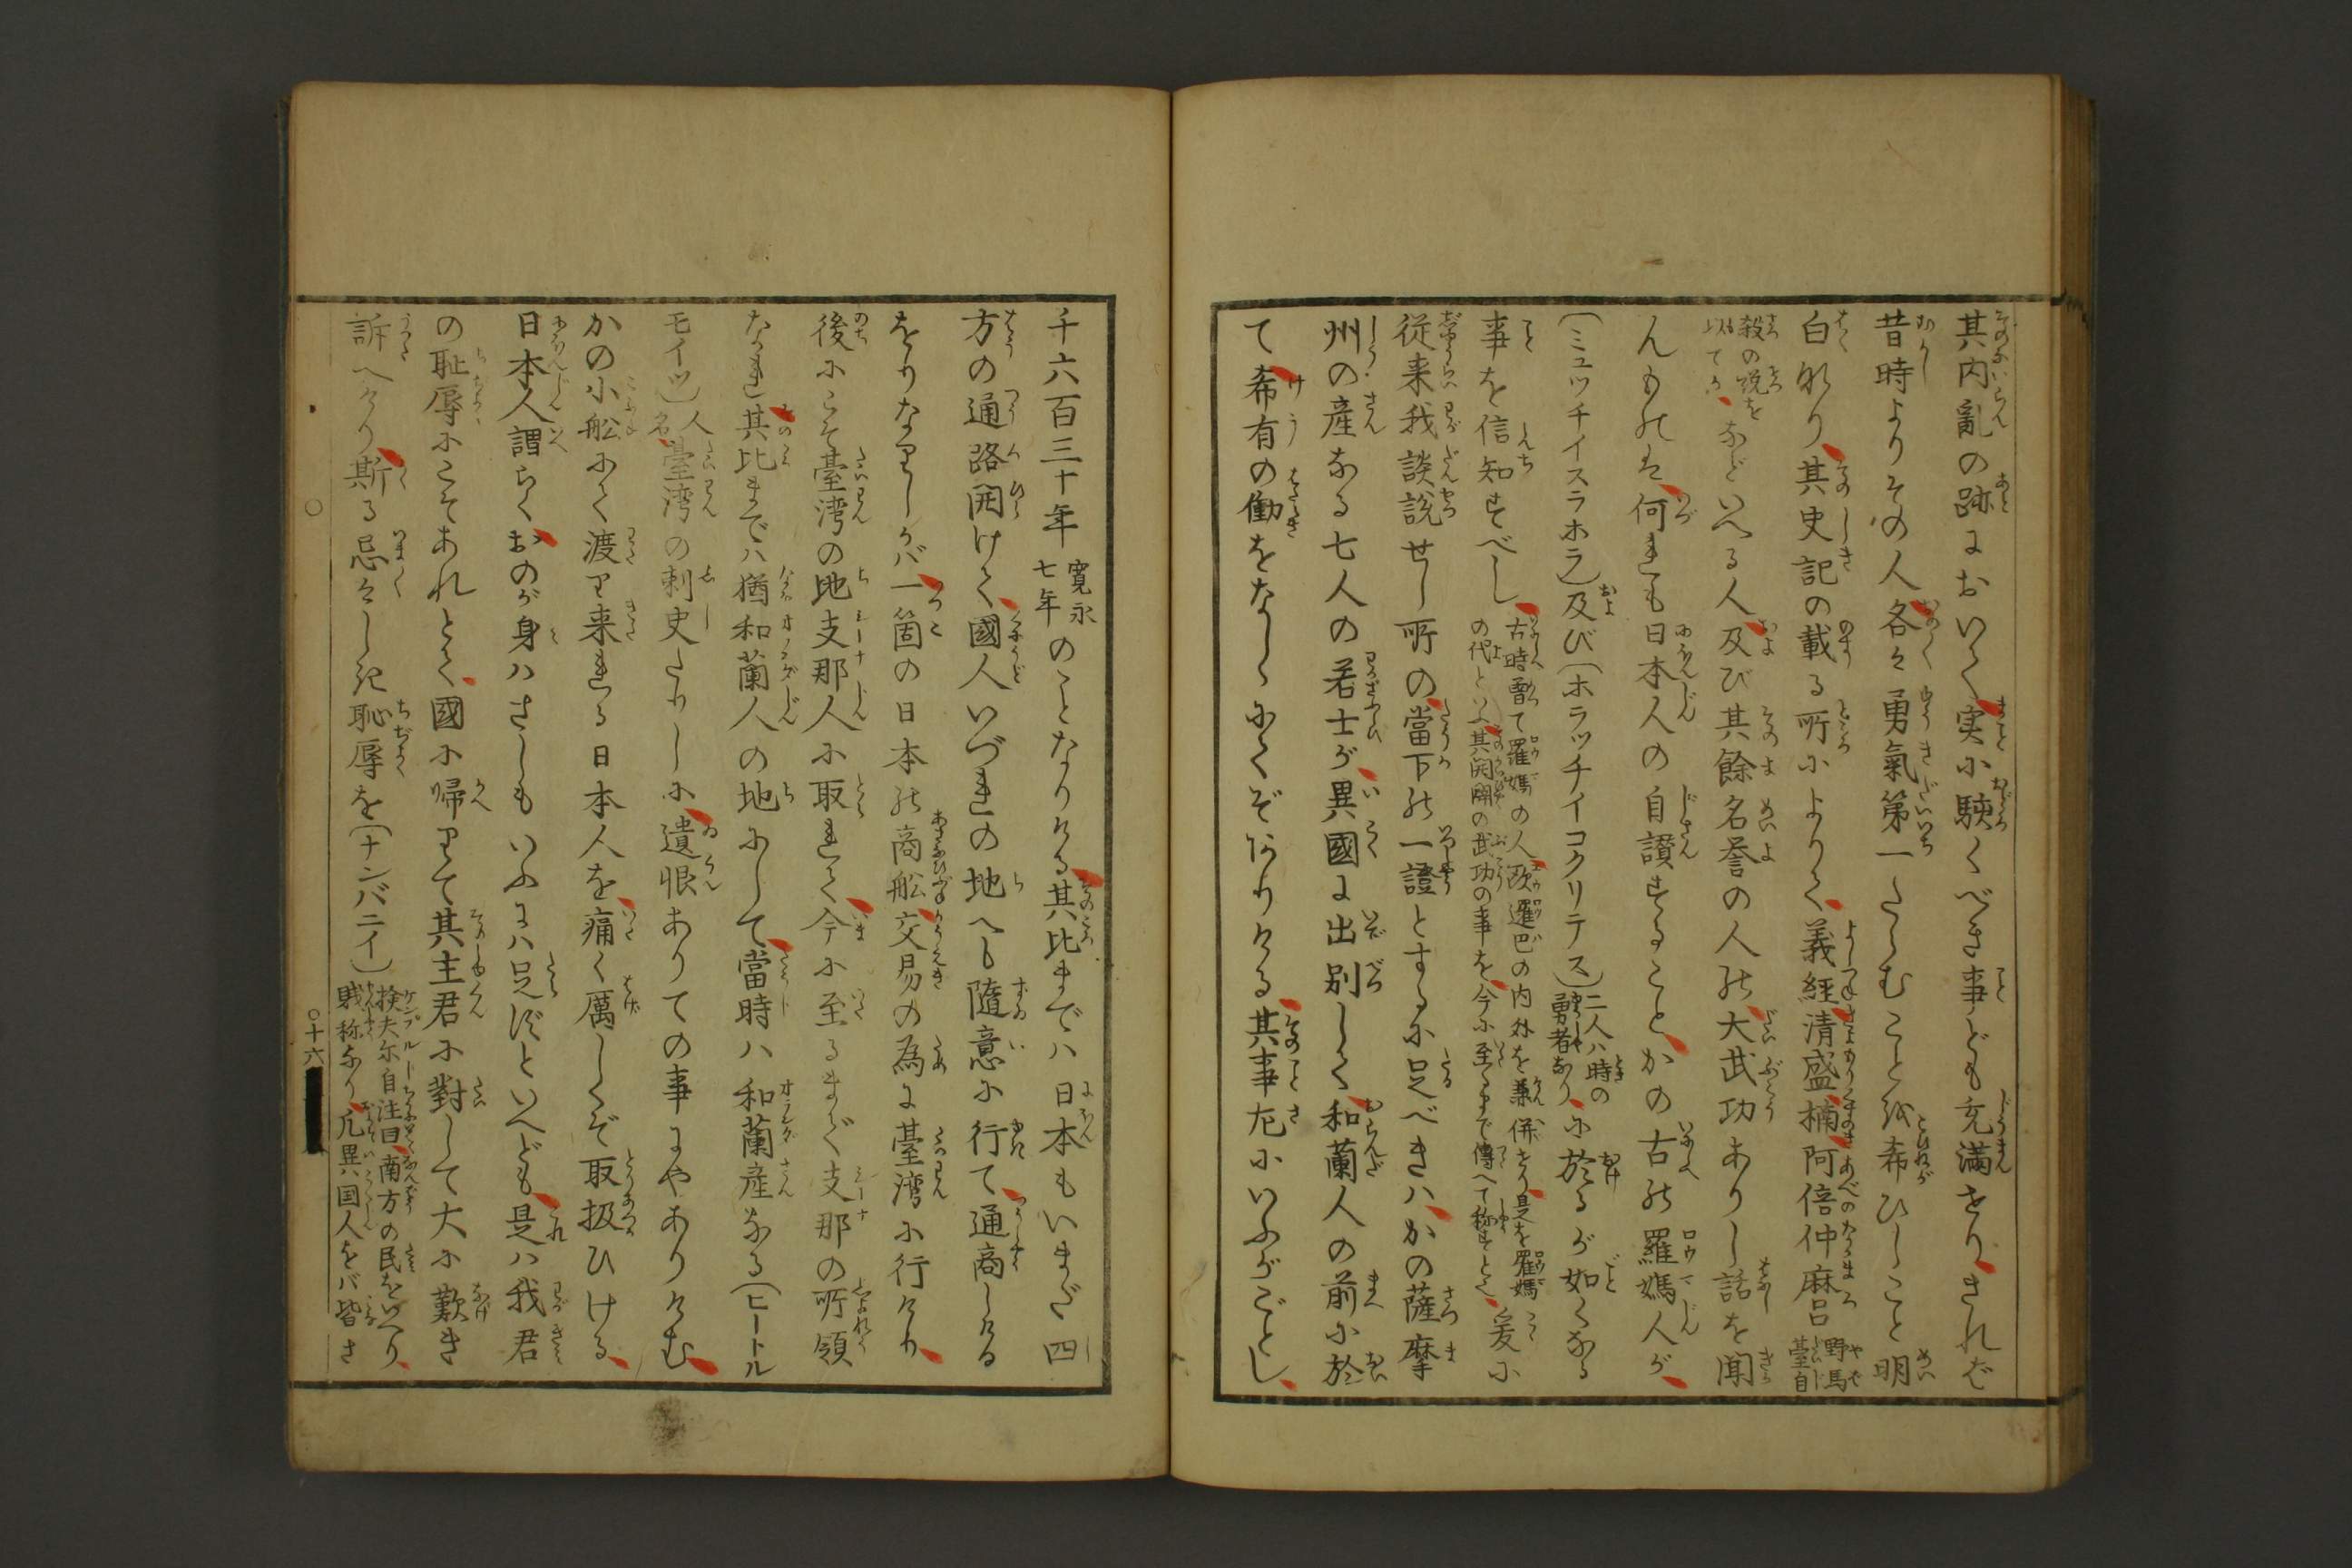 其内亂の跡においく実に駭くべき事ども充満せりされば
昔時よりその人各々勇氣第一たらむことを希ひしこと明
白なり其史記の載る所によりく義經清盛楠阿倍仲麻呂
野馬
臺自
殺の説を
以てか
などいへる人及び其餘名誉の人の大武功ありし話を聞
んものは何れも日本人の自讃することかの古の羅媽人が
(ミュッチイスラホラ)及び(ホラッチイコクリテス)
二人ハ時の
勇者なり
に於るが如くなる
事を信知すべし
古時曾て羅媽の人欧邏巴の内外を兼併せり是を羅媽
の代といふ其開闢の武功の事を今に至るまで傳へて称すとぞ
爰に
従来我談説せし所の當下の一證とするに足べきハかの薩摩
州の産なる七人の若士が異國に出別しく和蘭人の前に於
て希有の働をなしゝにくぞありける其事左にいふがごとし
千六百三十年
寛永
七年
のことなりける其比までハ日本もいまだ四
方の通路開けく國人いづれの地へも隨意に行て通商しける
をりなりしかバ一箇の日本の商舩交易の為に臺湾に行けり
後にこそ臺湾の地支那人に取れく今に至るまで支那の所領
なれ其比までハ猶和蘭人の地にして當時ハ和蘭産なる(ヒートル
モイツ)
人
名
臺湾の刺史たりしに遺恨ありての事にやありけむ
かの小舩にく渡り来れる日本人を痛く厲しくぞ取扱ひける
日本人謂らくおのが身ハさしもいふにハ足ずといへども是ハ我君
の恥辱にこそあれとく國に帰りて其主君に對して大に歎き
訴へけり斯る忌々しき恥辱を(ナンバニイ)
検夫尓自注曰南方の民をいへり
賎称なり凡異国人をバ皆さ
〇十六